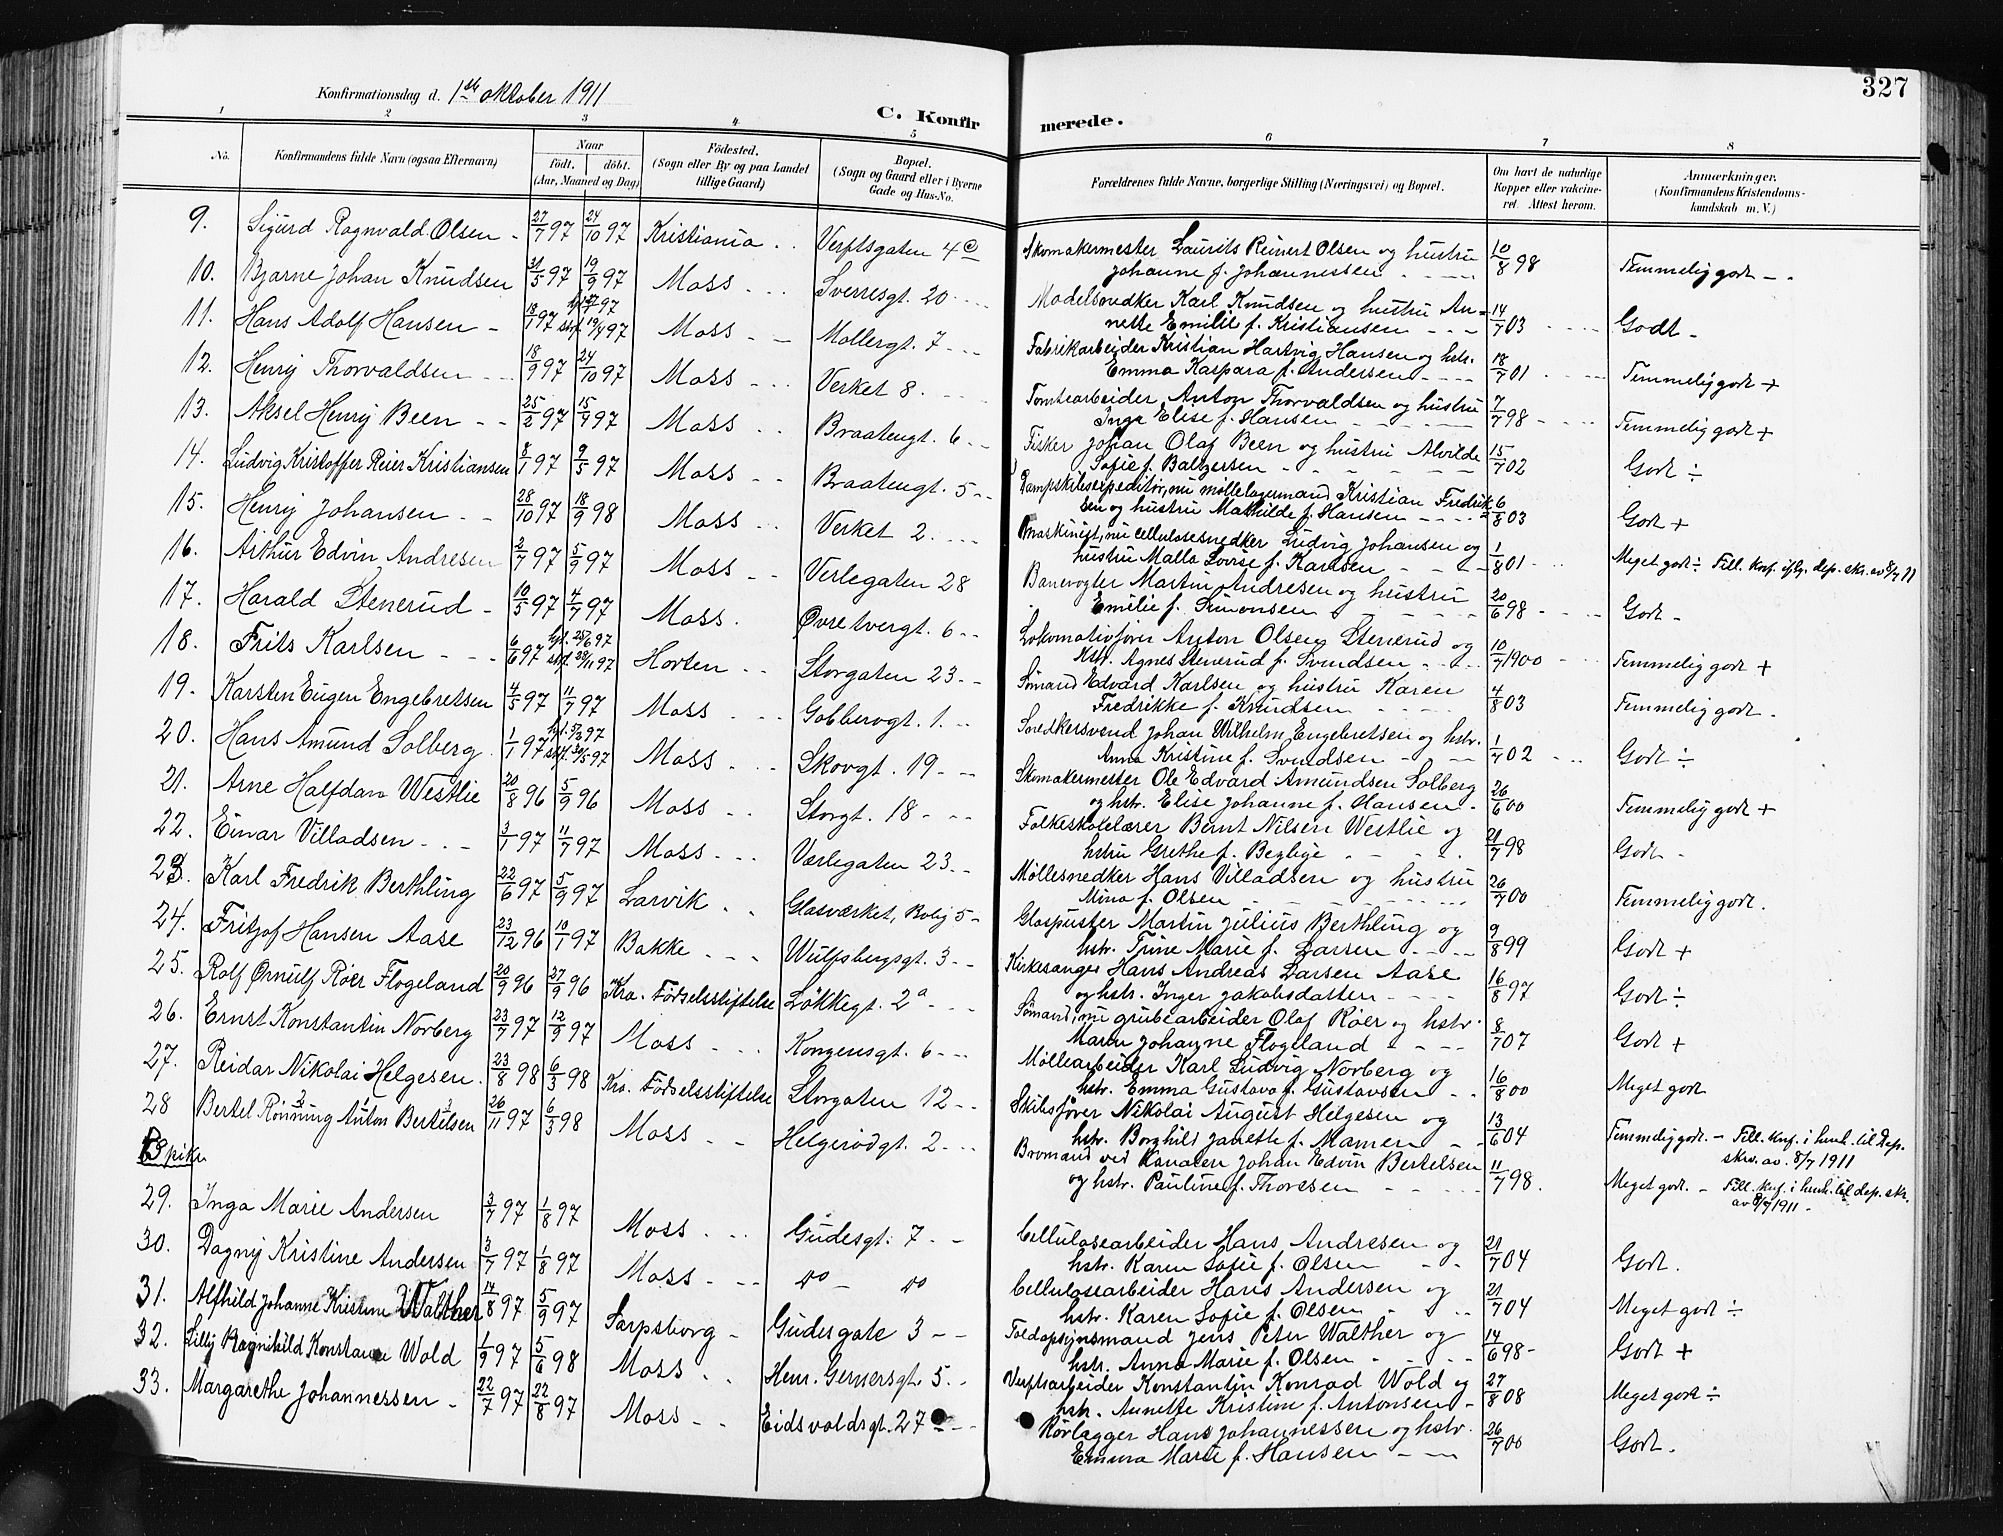 327
Konfirmationsdag d. 1ste oktober 1911
C. Konfirmerede.
1 2 3 4 5 6 7 8
No. Konfirmandens fulde Navn (ogsaa Efternavn) Naar födt. döbt. (Aar, Maaned og Dag) Födested. (Sogn eller By og paa Landet tillige Gaard) Bopæl. (Sogn og Gaard eller i Byerne Gade og Hus-No. Forældrenes fulde Navne, borgerlige Stilling (Næringsvei) og Bopæl. Om havt de naturlige Kopper eller vakcineret. Attest herom. Anmærkninger. (Konfirmandens Kristendomskundskab m. V.)
9. Sigurd Ragnvald Olsen - 27/7 97 24/10 97 Kristiania - - Verftsgaten 4c Skomakermester Laurits Reinert Olsen og hustru Johanne f. Johannessen - - - - 10/8 98 Temmelig godt - -
10. Bjarne Johan Knudsen 31/5 97 19/9 97 Moss - - - Sverresgt. 20 - - - Modelsnedker Karl Knudsen og hustru Annette Emilie f. Kristiansen - - - 14/7 03 - - - Godt -
11. Hans Adolf Hansen - 18/1 97 stf. 19/4 97 Moss - - Mollergt. 7 - - - Fabrikarbeider Kristian Hartvig Hansen og hstr. Emma Kaspara f. Andersen - - - - 18/7 01 - - - - Temmelig godt +
12. Henry Thorvaldsen - - 18/9 97 24/10 97 Moss - - - Verket 8. - - - Tomtearbeider Anton Thorvaldsen og hustru Inga Elise f. Hansen - - - - - - 7/7 98 - - - - Temmelig godt +
13. Aksel Henry Been - - 25/2 97 15/9 97 Moss - - Braatengt. 6 - - Fisker Johan Olaf Been og hustru Alvilde Sofie f. Baltzersen - - - - - - 15/7 02 Godt ÷
14. Ludvig Kristoffer Reier Kristiansen 8/1 97 9/5 97 Moss - - Braatengt. 5 - - Dampskibsexpeditör, nu möllelagermand Kristian Fredriksen og hustru Mathilde f. Hansen - - - - 6/8 03 Godt +
15. Henry Johansen - - 28/10 97 18/9 98 Moss - - - Verket 2. - - - Maskinist, nu cellulosesnedker Ludvig Johansen og hustru Malla Lovise f. Karlsen - - - - 1/8 01 - - - Meget godt ÷ Till. konf. iflg. dep. skr. av 8/7 11
16. Arthur Edvin Andresen 2/7 97 5/9 97 Moss - - Verlegaten 28 Banevogter Martin Andresen og hustru Emilie f. Simonsen - - - - 20/6 98 - - - - Godt -
17. Harald Stenerud - 10/5 97 4/7 97 Moss. - Øvre tvergt. 6 - - Lokomotivförer Anton Olsen Stenerud og Hstr. Agnes Stenerud f. Svendsen - - - - 10/7 1900 - - - Temmelig godt +
18. Frits Karlsen - - - 6/6 97 hjd. 25/6 97 stf. 28/11 97 Horten - - Storgaten 23 - - Sömand Edvard Karlsen og hustru Karen Fredrikke f. Knudsen - - - - 4/8 03 Temmelig godt -
19. Karsten Eugen Engebretsen 4/5 97 11/7 97 Moss - - - Gobberogt. 1. - - Snedkersvend Johan Wilhelm Engebretsen og hstr. Anna Kristine f. Svendsen - - - - 1/7 02 - - - Godt ÷
20. Hans Amund Solberg. 1/1 97 stf. 30/5 97 Moss - - - Skovgt. 19 - - - Skomakermester Ole Edvard Amundsen Solberg og hstr. Elise Johanne f. Hansen - 26/6 00 Temmelig godt +
21. Arne Halfdan Westlie 20/8 96 5/9 96 Moss - - Storgt. 18 - - - Folkeskolelærer Bernt Nilsen Westlie og hstru Grethe f. - - - - 21/7 98 Godt -
22. Einar Villadsen - - - 3/1 97 11/7 97 Moss - - - Værlegaten 23 - - Möllesnedker Hans Villadsen og hustru Mina f. Olsen - - - - - - 26/7 00 Temmelig godt.
23. Karl Fredrik Berthling 22/6 97 5/9 97 Larvik - - Glasværket, Bolig 5 - Glaspuster Martin Julius Berthling og hstr. Trine Marie f. Larsen - - - - 9/8 99 Godt +
24. Fritjof Hansen Aase 23/12 96 10/1 97 Bakke - - - Wulfsbergsgt. 3 - - Kirkesanger Hans Andreas Larsen Aase og hstr. Inger Jakobsdatter - - - - 16/8 97 Godt ÷
25. Rolf Ørnulf Röer Flogeland 20/9 96 27/9 96 Kra. Födselsstiftelse Lökkegt. 2a - - Sömand, nu grubearbeider Olaf Röer og hstr. Maren Johanne Flogeland - - - - 8/7 07 Godt +
26. Ernst Konstantin Norberg 23/7 97 12/9 97 Moss - - - Kongensgt. 6 - - - Möllearbeider Karl Ludvig Norberg og hstr. Emma Gustava f. Gustavsen - - 16/8 00 Meget godt
27. Reidar Nikolai Helgesen. 23/8 98 6/3 98 Kra. Födselsstiftelse Storgaten 12 - - Skibsförer Nikolai August Helgesen og hstr. Borghild Janette f. Mamen - - 13/6 04 Temmelig godt. - Till. konf. i henh. til Dep. skr. av. 8/7 1911
28 Bertel Rönning Anton Bertelsen 26/11 97 6/3 98 Moss - - Helgerödgt. 2 - - - Bromand ved Kanalen Johan Edvin Bertelsen og hstr. Pauline f. Thoresen - - - - 11/7 98. Meget godt. - Till. konf. i henh. til dep. skr. av 8/7 1911 -
piker
29. Inga Marie Andersen 3/7 97 1/8 97 Moss - - - Gudesgt. 7 - - Cellulosearbeider Hans Andresen og hstr. Karen Sofie f. Olsen - - 21/7 04 Godt.
30. Dagny Kristine Andersen 3/7 97 1/8 97 Moss - - - do - do Cellulosearbeider Hans Andersen og hstr. Karen Sofie f. Olsen - - - 21/7 04 Meget godt ÷
31. Alfhild Johanne Kristine Walther 14/8 97 5/9 97 Sarpsborg - Gudesgate 3 - - Toldopsynsmand Jens Peter Walther og hstr. Anna Marie f. Olsen - - - - 14/6 98 - Godt +
32. Lilly Ragnihild Konstance Wold 1/9 97 5/6 98 Moss - - Henr. Gernersgt. 5 - - Verftsarbeider Konstantin Konrad Wold og hstr. Annette Kristine f. Antonsen - 27/8 08 Meget godt ÷
33. Margarethe Johannessen - 22/7 97 22/8 97 Moss - - Eidsvoldsgt. 27 - - Rörlægger Hans Johannessen og hstr. Emma Marie f. Hansen - - - 26/7 00 Godt -